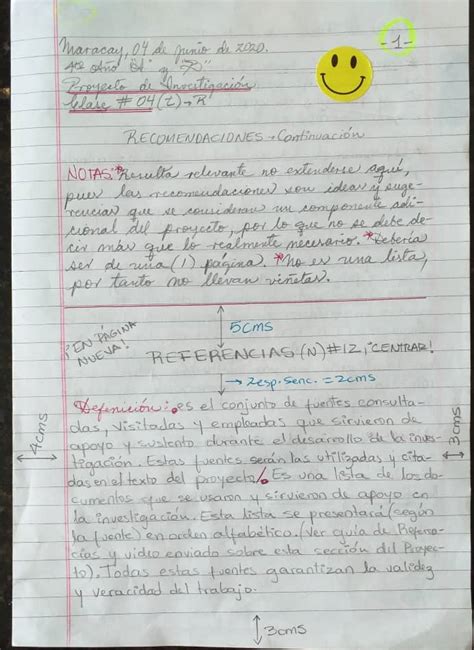 -1-
Maracay, 04 de junio de 2020.
4to Año "A" y "B"
Proyecto de Investigación
Clase # 04 (2)→R"
RECOMENDACIONES→Continuación
NOTAS:*Resulta relevante no extenderse aquí,
pues las recomendaciones son ideas y suge-
rencias que se consideran un componente adi-
cional del proyecto, por lo que no se debe de-
cir más que lo realmente necesario. *Debería
ser de una (1) página. *No es una lista,
por tanto no llevan viñetas.
5cms
¡EN PÁGINA
NUEVA!
REFERENCIAS (N)#12, ¡CENTRAR!
→ 2esp. senc. = 2cms
Definición: es el conjunto de fuentes consulta-
das, visitadas y empleadas que sirvieron de
apoyo y sustento durante el desarrollo de la inves-
tigación. Estas fuentes serán las utilizadas y cita-
das en el texto del proyecto. Es una lista de los do-
cumentos que se usaron y sirvieron de apoyo en
la investigación. Esta lista se presentará (según
la fuente) en orden alfabético. (Ver guía de Referen-
cias y video enviado sobre esta sección del Proyec-
to). Todas estas fuentes garantizan la validez
y veracidad del trabajo.
4cms
3cms
3cms